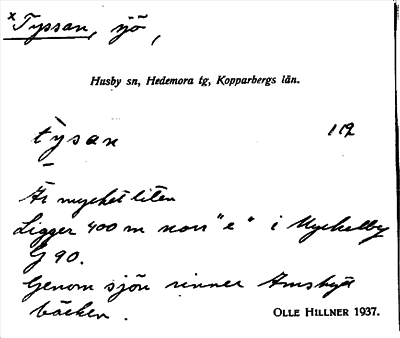 × Tyssan, sjö,
Husby sn, Hedemora tg, Kopparbergs län.
tysan 112
Är mycket liten
Ligger 400 m norr "e" i Myckelby
G 90.
Genom sjön rinner Amsbyä
bäcken.
OLLE HILLNER 1937.